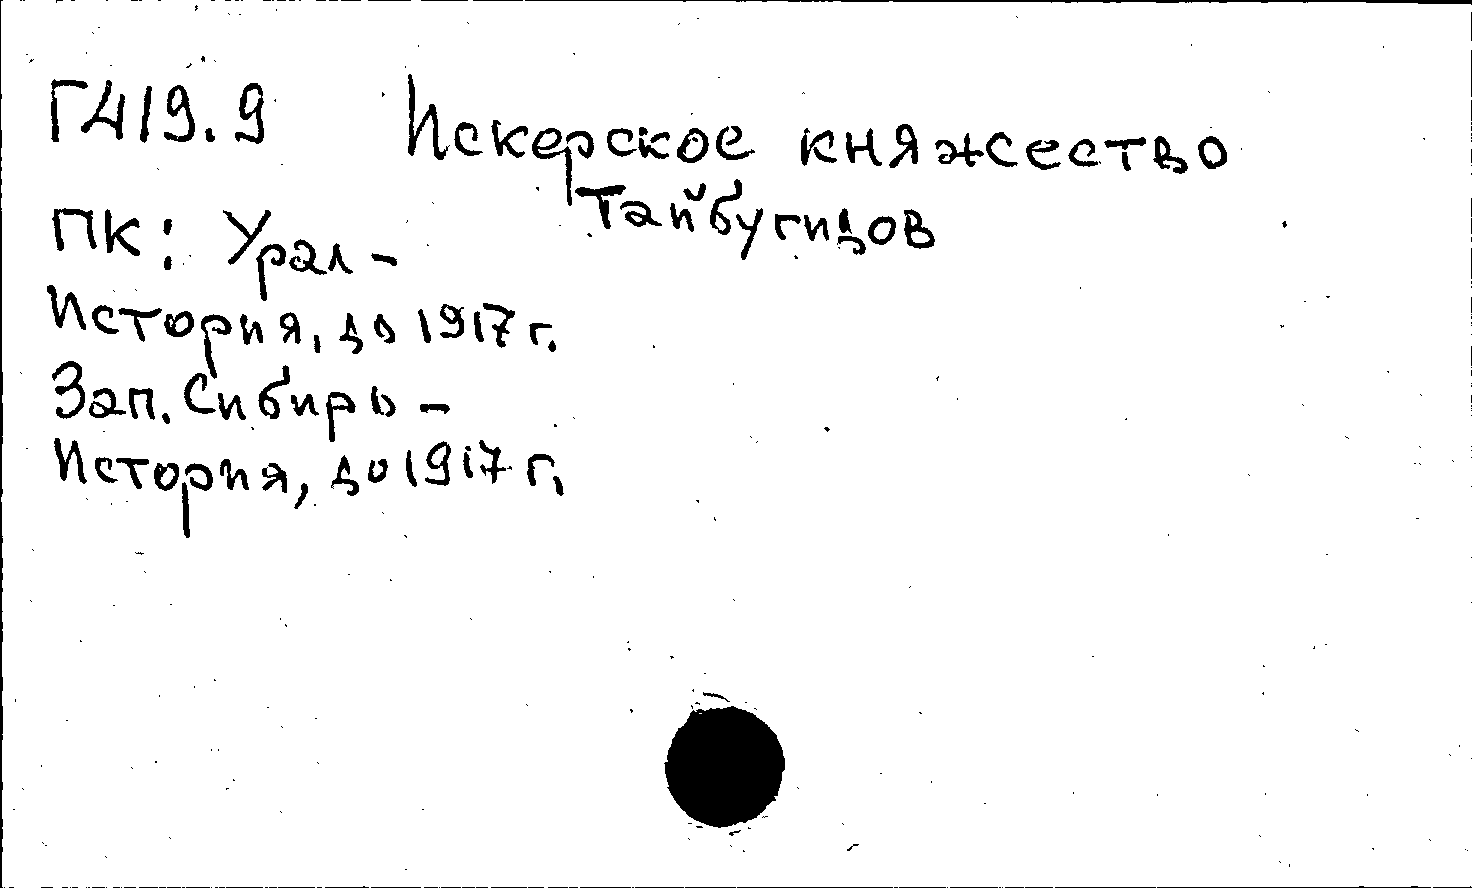 Г419.9 Искерское княжество
Тайбугидов
ПК: Урал -
История, до 1917 г.
Зап. Сибирь -
История, до 1917 г.